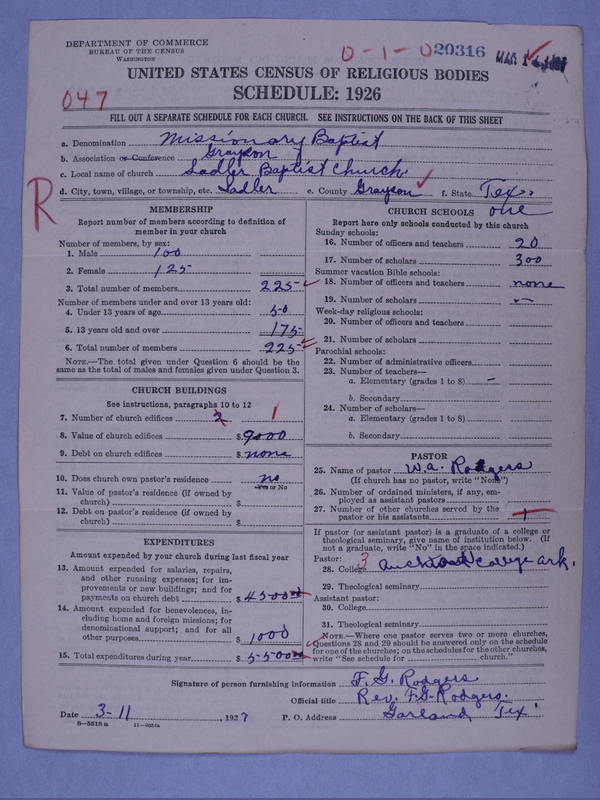 DEPARTMENT OF COMMERCE
BUREAU OF THE CENSUS
WASHINGTON
0-1-0 20316
UNITED STATES CENSUS OF RELIGIOUS BODIES
SCHEDULE: 1926
047
FILL OUT A SEPARATE SCHEDULE FOR EACH CHURCH. SEE INSTRUCTIONS ON THE BACK OF THIS SHEET
a. Denomination Missionary Baptist
b. Association or Conference Grayson
c. Local name of church Sadler Baptist Church.
d. City, town, village, or township, etc. Sadler e. County Grayson f. State Tex.
R
MEMBERSHIP
Report number of members according to definition of member in your church
Number of members, by sex:
1. Male 100
2. Female 125
3. Total number of members 225
Number of members under and over 13 years old:
4. Under 13 years of age 50
5. 13 years old and over 175
6. Total number of members 225
NOTE.—The total given under Question 6 should be the
same as the total of males and females given under Question 3.
CHURCH BUILDINGS
See instructions, paragraphs 10 to 12
7. Number of church edifices 2 1
8. Value of church edifices $ 9000
9. Debt on church edifices $ none
10. Does church own pastor's residence no
Yes or No
11. Value of pastor's residence (if owned by
church) $
12. Debt on pastor's residence (if owned by
church) $
EXPENDITURES
Amount expended by your church during last fiscal year
13. Amount expended for salaries, repairs,
and other running expenses; for im-
provements or new buildings; and for
payments on church debt $ 4500 00
14. Amount expended for benevolences, in-
cluding home and foreign missions; for
denominational support; and for all
other purposes $ 1000
15. Total expenditures during year $ 5500 00
CHURCH SCHOOLS one
Report here only schools conducted by this church
Sunday schools:
16. Number of officers and teachers 20
17. Number of scholars 300
Summer vacation Bible schools:
18. Number of officers and teachers none
19. Number of scholars —
Week-day religious schools:
20. Number of officers and teachers
21. Number of scholars
Parochial schools:
22. Number of administrative officers
23. Number of teachers—
a. Elementary (grades 1 to 8) —
b. Secondary
24. Number of scholars—
a. Elementary (grades 1 to 8)
b. Secondary
PASTOR
25. Name of pastor W.A. Rodgers
(If church has no pastor, write "None")
26. Number of ordained ministers, if any, em-
ployed as assistant pastors
27. Number of other churches served by the
pastor or his assistants 1
If pastor (or assistant pastor) is a graduate of a college or
theological seminary, give name of institution below. (If
not a graduate, write "No" in the space indicated.)
Pastor: 3
28. College college ark.
29. Theological seminary
Assistant pastor:
30. College
31. Theological seminary
NOTE.—Where one pastor serves two or more churches,
Questions 28 and 29 should be answered only on the schedule
for one of the churches; on the schedules for the other churches,
write "See schedule for church."
Signature of person furnishing information F.G. Rodgers
Official title Rev. F.G. Rodgers.
Date 3-11, 1927 P. O. Address Garland Tex
8—5518 a